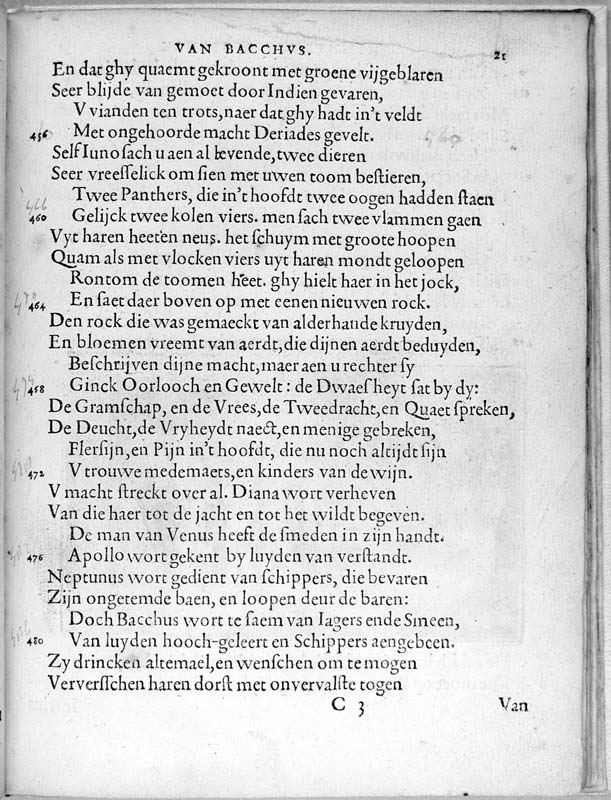 VAN BACCHVS.
21
En dat ghy quaemt gekroont met groene vijgeblaren
Seer blijde van gemoet door Indien gevaren,
V vianden ten trots, naer dat ghy hadt in't veldt
456 Met ongehoorde macht Deriades gevelt.
Self Iuno sach u aen al levende, twee dieren
Seer vreesselick om sien met uwen toom bestieren,
Twee Panthers, die in't hoofdt twee oogen hadden staen
460 Gelijck twee kolen viers. men sach twee vlammen gaen
Vyt haren heeten neus. het schuym met groote hoopen
Quam als met vlocken viers uyt haren mondt geloopen
Rontom de toomen heet. ghy hielt haer in het jock,
464 En saet daer boven op met eenen nieuwen rock.
Den rock die was gemaeckt van alderhande kruyden,
En bloemen vreemt van aerdt, die dijnen aerdt beduyden,
Beschrijven dijne macht, maer aen u rechter sy
468 Ginck Oorlooch en Gewelt: de Dwaesheyt sat by dy:
De Gramschap, en de Vrees, de Tweedracht, en Quaet spreken,
De Deucht, de Vryheydt naect, en menige gebreken,
Flersijn, en Pijn in't hoofdt, die nu noch altijdt sijn
472 V trouwe medemaets, en kinders van de wijn.
V macht streckt over al. Diana wort verheven
Van die haer tot de jacht en tot het wildt begeven.
De man van Venus heeft de smeden in zijn handt.
476 Apollo wort gekent by luyden van verstandt.
Neptunus wort gedient van schippers, die bevaren
Zijn ongetemde baen, en loopen deur de baren:
Doch Bacchus wort te saem van Iagers ende Smeen,
480 Van luyden hooch-geleert en Schippers aengebeen.
Zy drincken altemael, en wenschen om te mogen
Ververschen haren dorst met onvervalste togen
C 3
Van